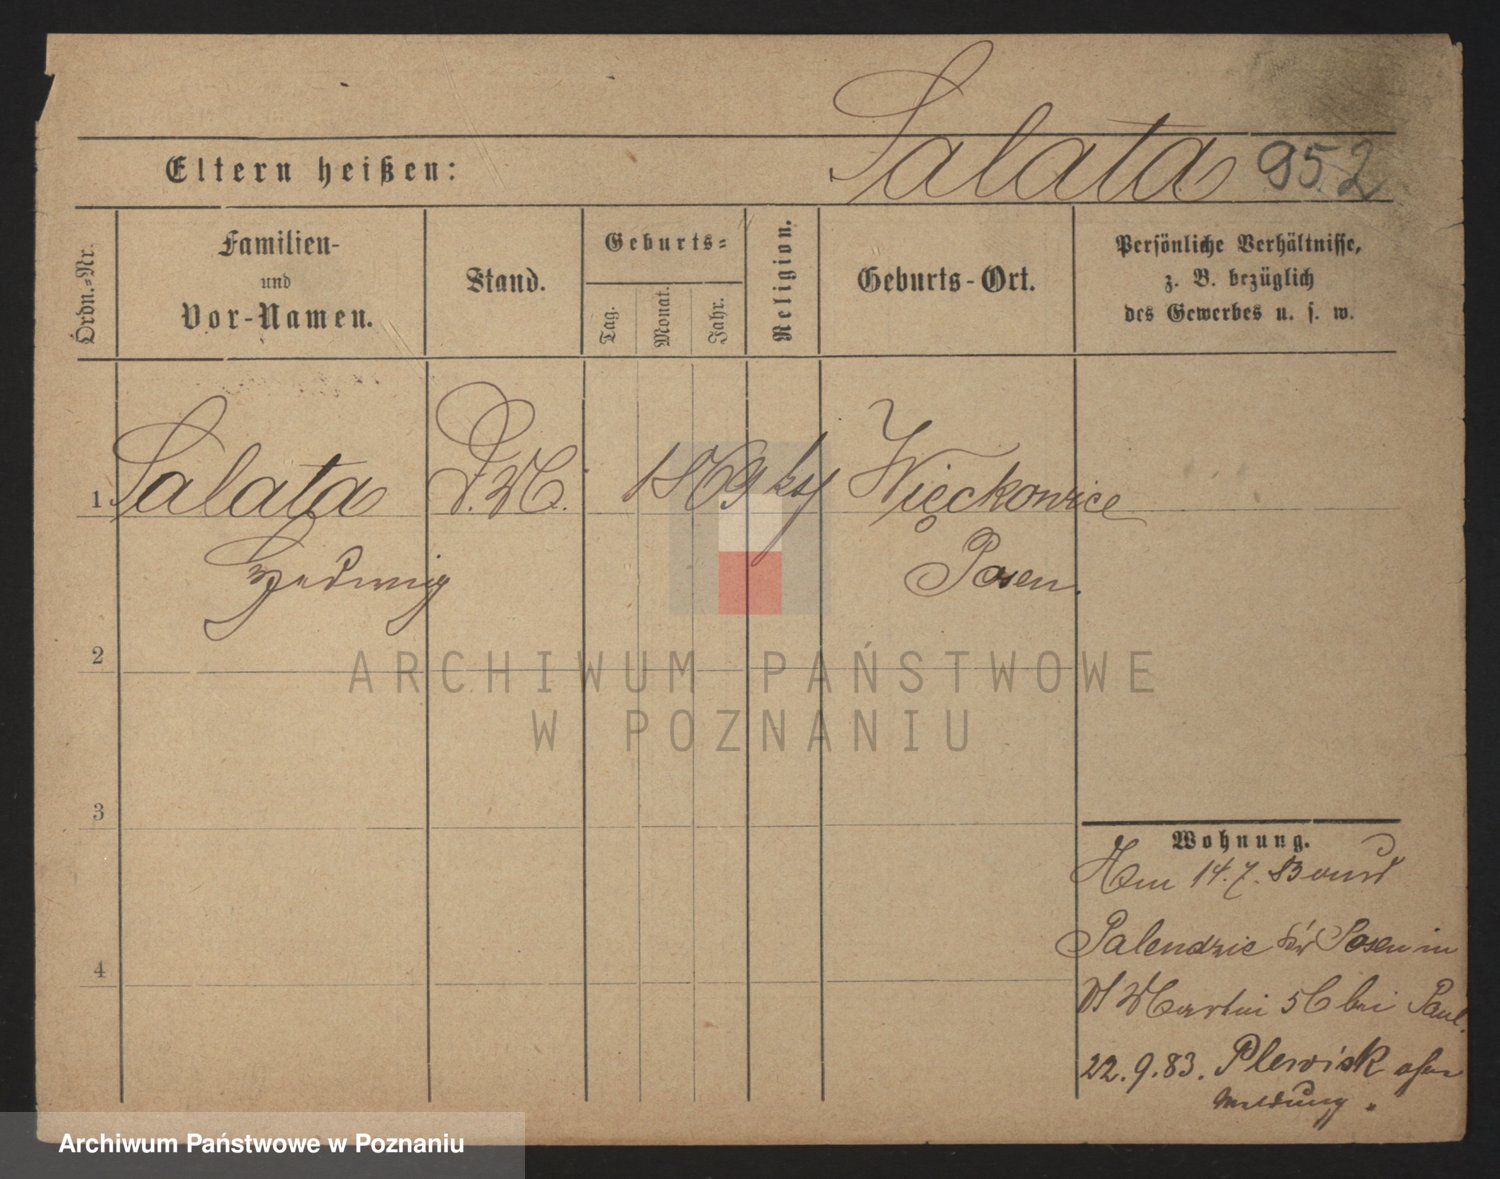 Salata 952
Eltern heißen:
Ordn.-Nr.
Familien-
und
Vor-Namen.
Stand.
Geburts-
Tag.
Monat.
Jahr.
Religion.
Geburts-Ort.
Persönliche Verhältnisse,
z. B. bezüglich
des Gewerbes u. s. w.
1 Salata D.M. 1869 kth Więckowice
Hedwig Posen.
2
ARCHIWUM PAŃSTWOWE
W POZNANIU
3
Wohnung.
14.7.83
Palendzie Kr Posen in
St Martin 56 bei Paul.
4
22.9.83. Plewisk ohne
Meldung.
Archiwum Państwowe w Poznaniu